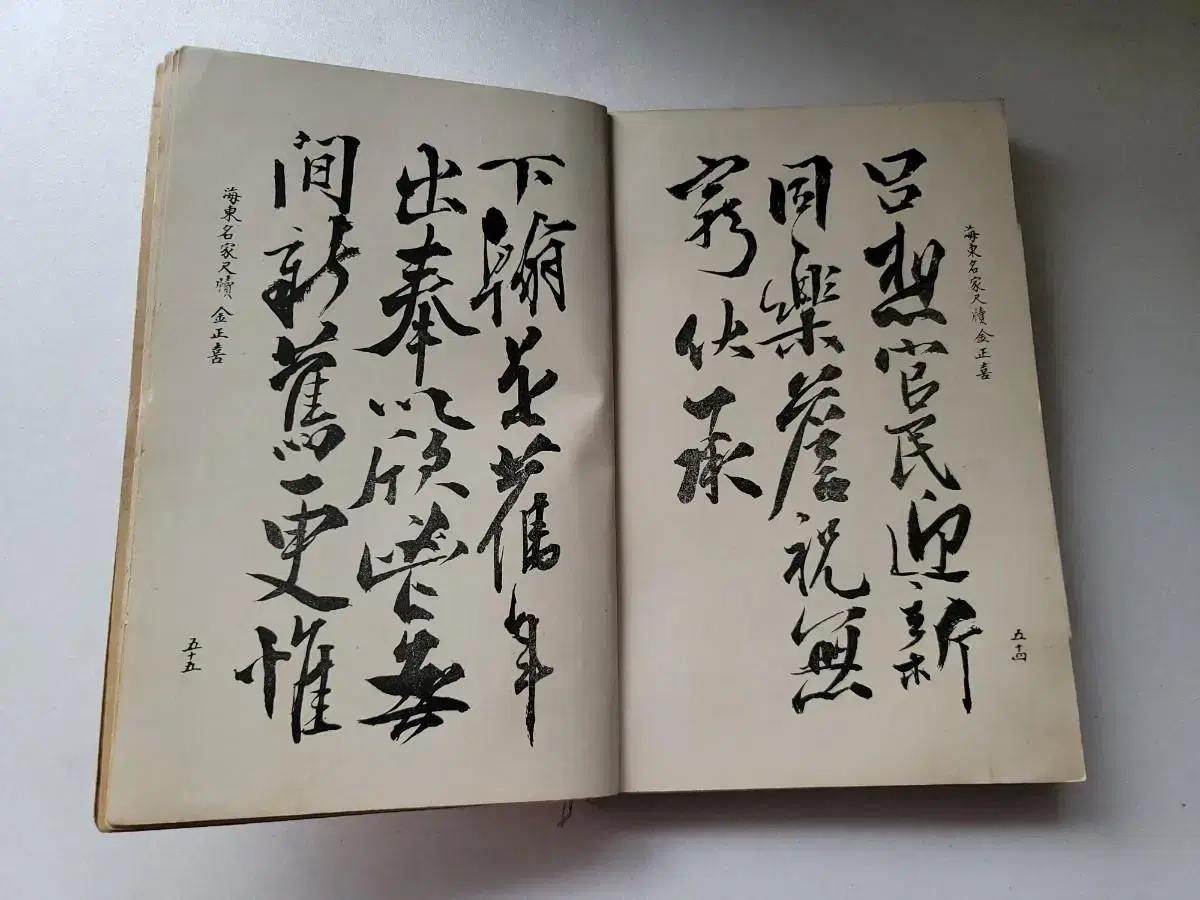 海東名家尺牘 金正喜
呂想官民迎新
同樂詹祝無
窮伏承
五十四
下翰是舊年
出奉以欣無
間新舊更惟
海東名家尺牘 金正喜
五十五